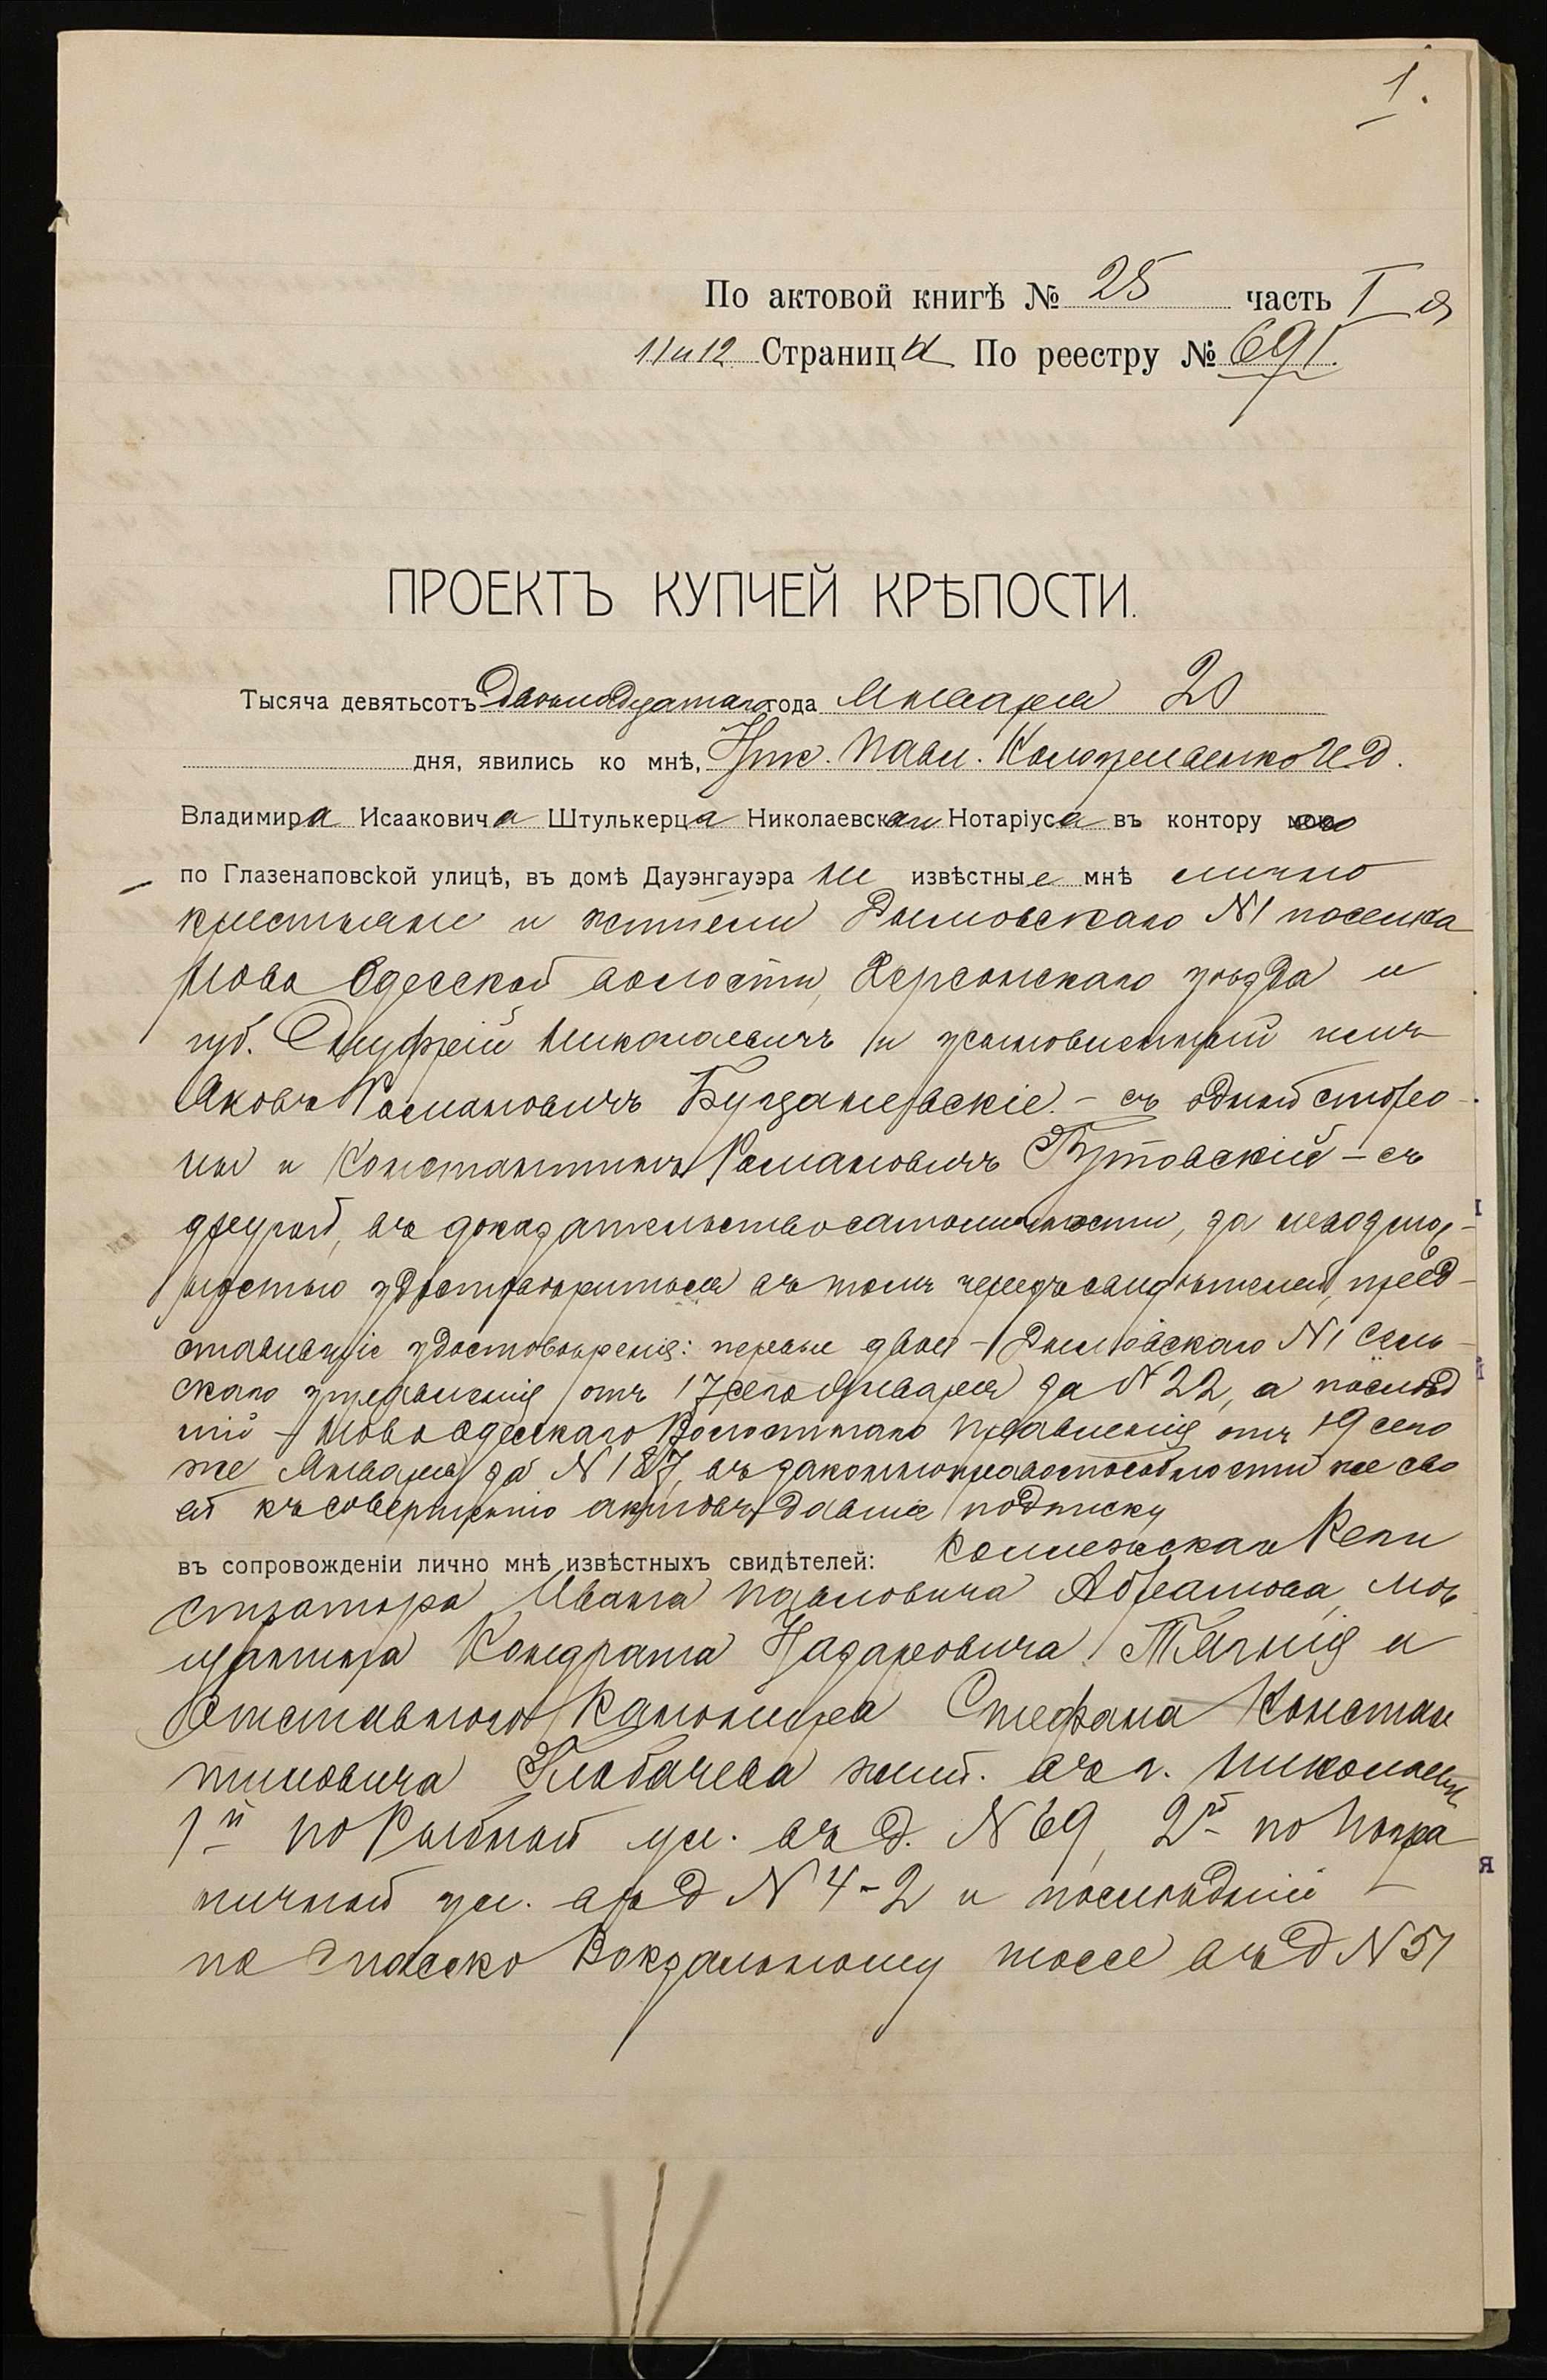 1.
По актовой книгѣ № 25 часть I я
11 и 12 Страницы По реестру № 691.
ПРОЕКТЪ КУПЧЕЙ КРѢПОСТИ.
Тысяча девятьсотъ двѣнадцатаго года Января 20
дня, явились ко мнѣ, Ник. Павл. И. Д.
Владимира Исааковича Штулькерца Николаевскаго Нотаріуса въ контору его
по Глазенаповской улицѣ, въ домѣ Дауэнгауэра не извѣстные мнѣ лично
крестьяне и жители Дымовскаго N1 поселка
Ново Одесской волости, Херсонскаго уѣзда и
губ. Онуфрій Николаевичъ и усыновленный имъ
Яковъ Романовичъ – съ одной сторо-
ны и Константинъ Романовичъ Бутовскій – съ
другой, въ доказательство самоличности, за невозмож-
ностью удостовѣриться въ томъ черезъ свидѣтелей, пред-
ставившіе удостовѣренія: первые двое – Дымовскаго N1 Сель-
скаго управленія отъ 17 сего Января за N 22, а послѣд
ній – Ново Одесскаго Волостнаго Правленія отъ 19 сего
же Января за N 187, въ законной правоспособности же сво
ей къ совершенію актовъ давшіе подписку
въ сопровожденіи лично мнѣ извѣстныхъ свидѣтелей: Коллежскаго Реги
стратора Ивана Павловича Абрамова, мѣ
щанина Кондрата Назаровича Тягнія и
Отставного Канонира Стефана Констан
тиновича Глобачева жит. въ г. Николаевѣ
1й по Рыбной ул. въ д. N 69, 2й по Погра
ничной ул. въ д N 4-2 и послѣдній –
по Спасско Вокзальному шоссе въ д N 51